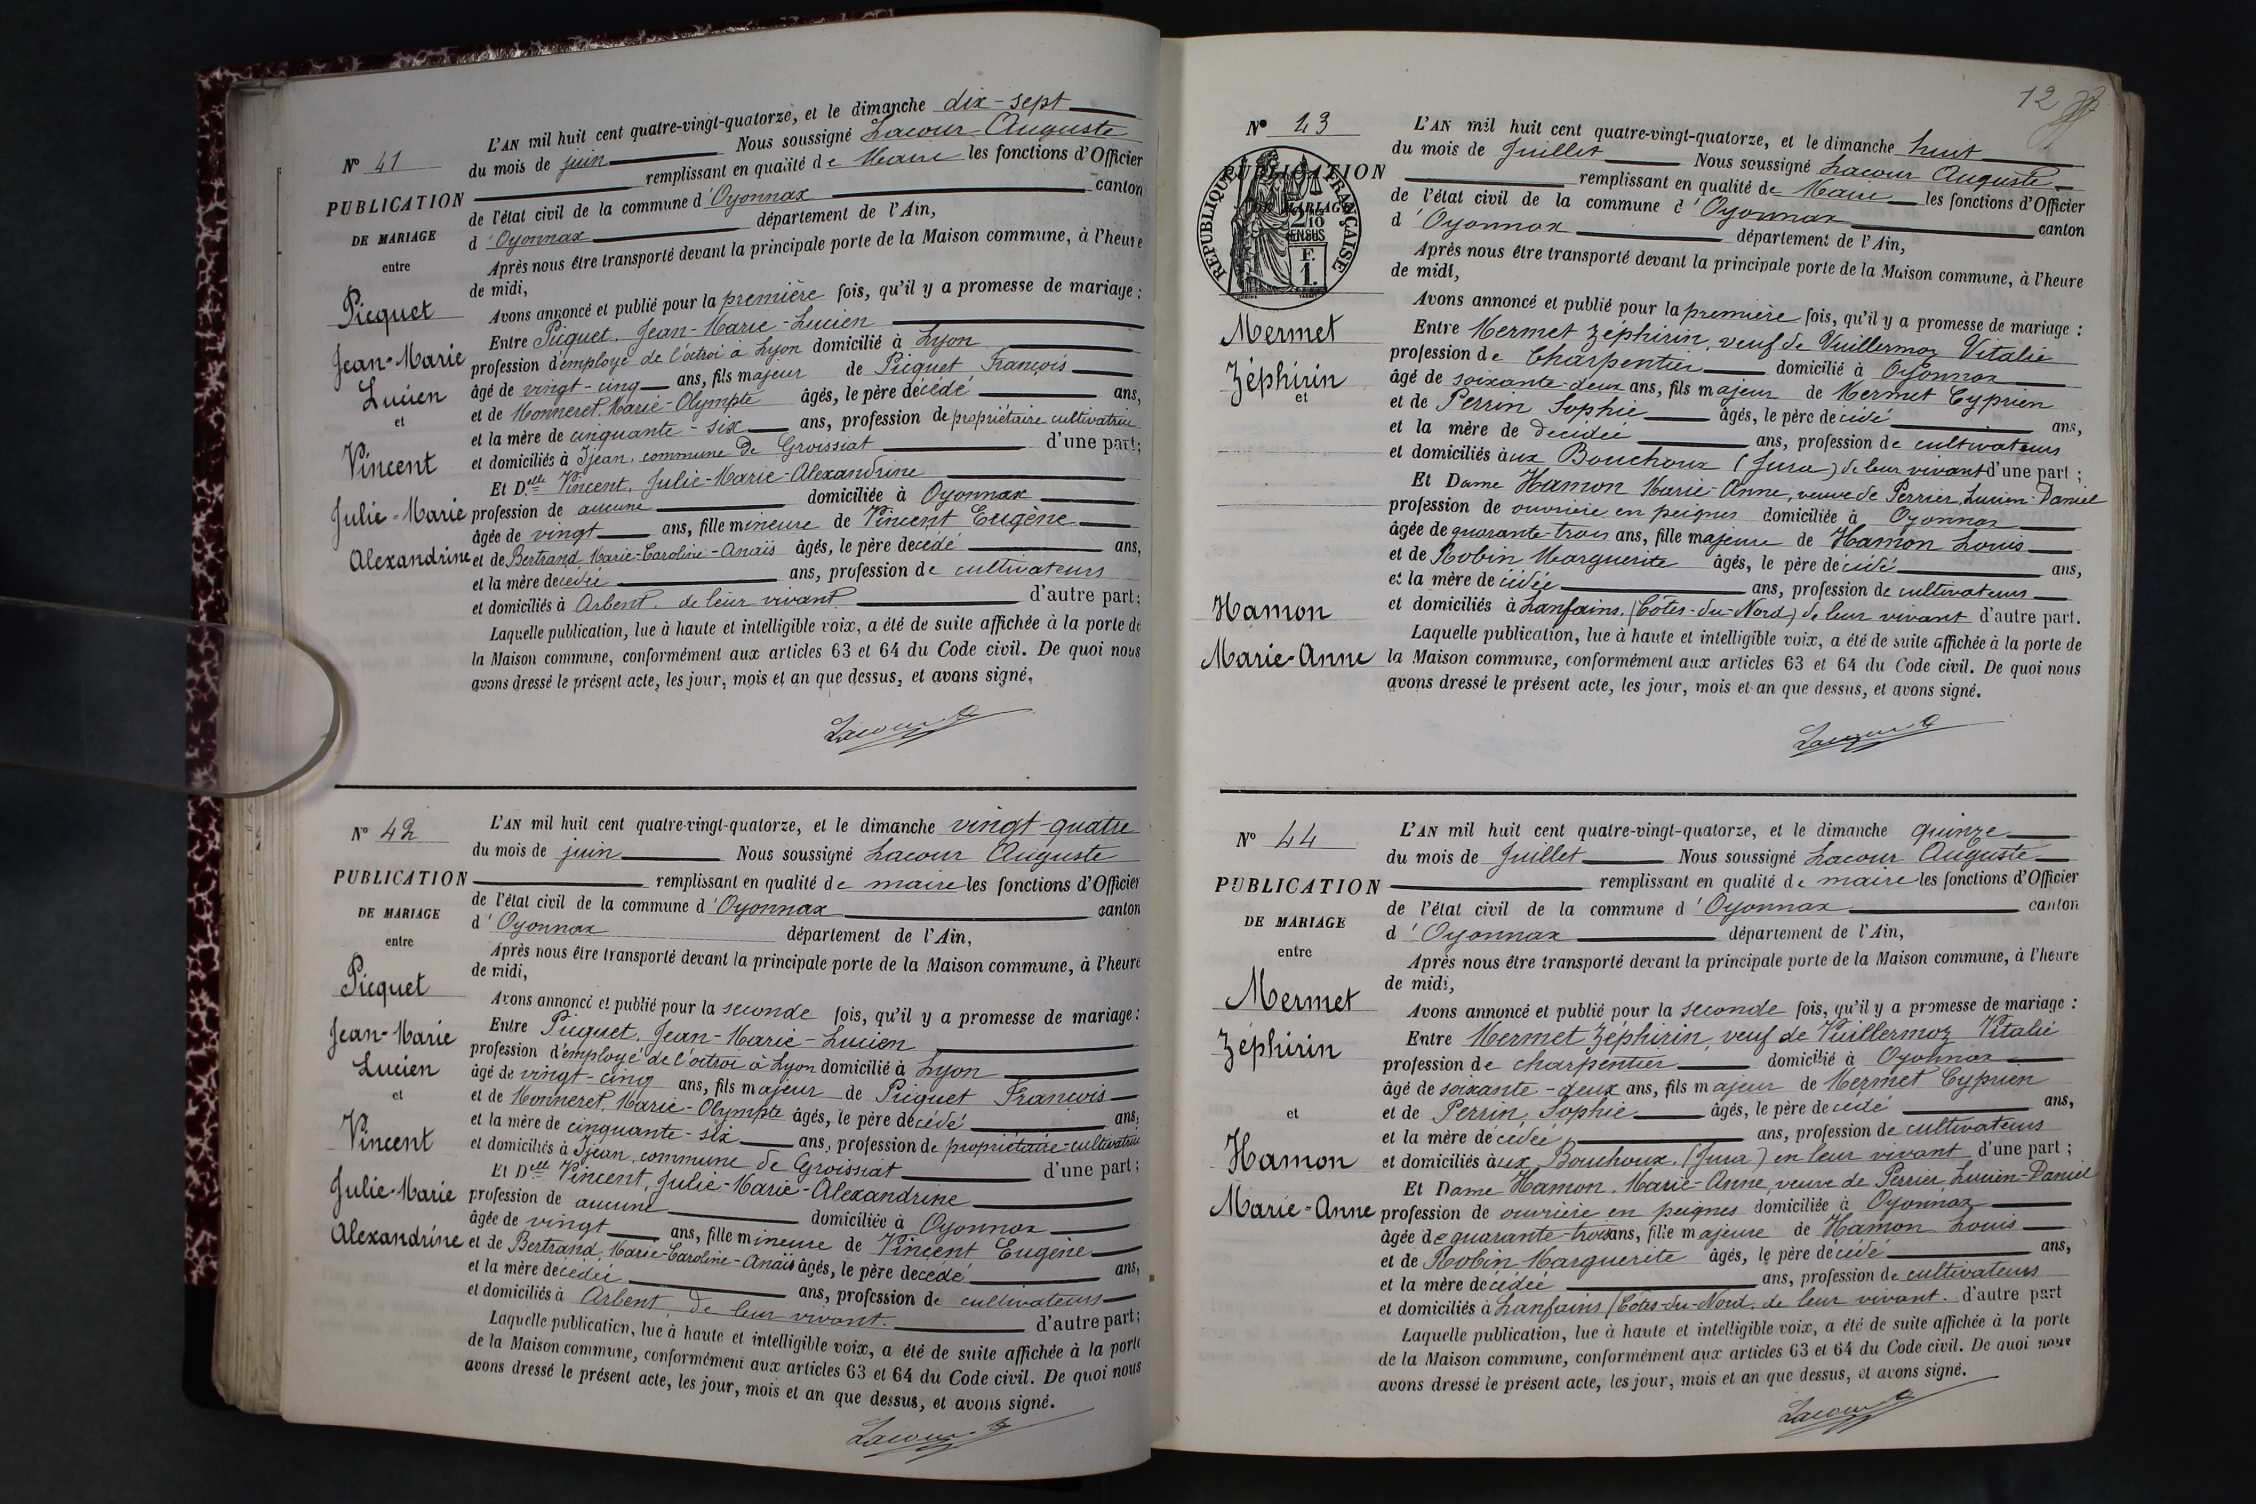 N° 41
PUBLICATION
DE MARIAGE
entre
Picquet
Jean-Marie
Lucien
et
Vincent
Julie-Marie
Alexandrine
L'AN mil huit cent quatre-vingt-quatorze, et le dimanche dix-sept
du mois de juin Nous soussigné Lacour Auguste
remplissant en qualité de Maire les fonctions d'Officier
de l'état civil de la commune d'Oyonnax canton
d'Oyonnax département de l'Ain,
Après nous être transporté devant la principale porte de la Maison commune, à l'heure
de midi,
Avons annoncé et publié pour la première fois, qu'il y a promesse de mariage :
Entre Picquet, Jean-Marie-Lucien
profession d'employé de l'octroi à Lyon domicilié à Lyon
âgé de vingt-cinq ans, fils majeur de Picquet François
et de Monneret, Marie-Olympte âgés, le père décédé ans,
et la mère de cinquante-six ans, profession de propriétaire cultivatrice
et domiciliés à Ijean, commune de Groissiat d'une part;
Et Delle Vincent, Julie-Marie-Alexandrine
profession de aucune domiciliée à Oyonnax
âgée de vingt ans, fille mineure de Vincent Eugène
et de Bertrand, Marie-Caroline-Anaïs âgés, le père decédé ans,
et la mère decédée ans, profession de cultivateurs
et domiciliés à Arbent, de leur vivant d'autre part;
Laquelle publication, lue à haute et intelligible voix, a été de suite affichée à la porte de
la Maison commune, conformément aux articles 63 et 64 du Code civil. De quoi nous
avons dressé le présent acte, les jour, mois et an que dessus, et avons signé.
Lacour A
N° 42
PUBLICATION
DE MARIAGE
entre
Picquet
Jean-Marie
Lucien
et
Vincent
Julie-Marie
Alexandrine
L'AN mil huit cent quatre-vingt-quatorze, et le dimanche vingt-quatre
du mois de juin Nous soussigné Lacour Auguste
remplissant en qualité de maire les fonctions d'Officier
de l'état civil de la commune d'Oyonnax canton
d'Oyonnax département de l'Ain,
Après nous être transporté devant la principale porte de la Maison commune, à l'heure
de midi,
Avons annoncé et publié pour la seconde fois, qu'il y a promesse de mariage :
Entre Picquet, Jean-Marie-Lucien
profession d'employé de l'octroi à Lyon domicilié à Lyon
âgé de vingt-cinq ans, fils majeur de Picquet François
et de Monneret, Marie-Olympte âgés, le père décédé ans,
et la mère de cinquante-six ans, profession de propriétaire-cultivatrice
et domiciliés à Ijean, commune de Groissiat d'une part;
Et Delle Vincent, Julie-Marie-Alexandrine
profession de aucune domiciliée à Oyonnax
âgée de vingt ans, fille mineure de Vincent Eugène
et de Bertrand, Marie-Caroline-Anaïs âgés, le père decédé ans,
et la mère decédée ans, profession de cultivateurs
et domiciliés à Arbent, de leur vivant. d'autre part;
Laquelle publication, lue à haute et intelligible voix, a été de suite affichée à la porte
de la Maison commune, conformément aux articles 63 et 64 du Code civil. De quoi nous
avons dressé le présent acte, les jour, mois et an que dessus, et avons signé.
Lacour A
12
N° 43
PUBLICATION
DE MARIAGE
RÉPUBLIQUE FRANÇAISE
2/10
EN SUS
F.
1.
Mermet
Zéphirin
et
Hamon
Marie-Anne
L'AN mil huit cent quatre-vingt-quatorze, et le dimanche huit
du mois de Juillet Nous soussigné Lacour Auguste
remplissant en qualité de Maire les fonctions d'Officier
de l'état civil de la commune d'Oyonnax canton
d'Oyonnax département de l'Ain,
Après nous être transporté devant la principale porte de la Maison commune, à l'heure
de midi,
Avons annoncé et publié pour la première fois, qu'il y a promesse de mariage :
Entre Mermet Zéphirin, veuf de Vuillermoz Vitalie
profession de Charpentier domicilié à Oyonnax
âgé de soixante-deux ans, fils majeur de Mermet Cyprien
et de Perrin Sophie âgés, le père decédé ans,
et la mère de decédée ans, profession de cultivateurs
et domiciliés aux Bouchoux (Jura) de leur vivant d'une part ;
Et Dame Hamon Marie-Anne, veuve de Perrier, Lucien-Daniel
profession de ouvrière en peignes domiciliée à Oyonnax
âgée de quarante-trois ans, fille majeure de Hamon Louis
et de Robin Marguerite âgés, le père décédé ans,
et la mère decédée ans, profession de cultivateurs
et domiciliés à Lanfains, (Côtes-du-Nord) de leur vivant d'autre part.
Laquelle publication, lue à haute et intelligible voix, a été de suite affichée à la porte de
la Maison commune, conformément aux articles 63 et 64 du Code civil. De quoi nous
avons dressé le présent acte, les jour, mois et an que dessus, et avons signé.
Lacour A
N° 44
PUBLICATION
DE MARIAGE
entre
Mermet
Zéphirin
et
Hamon
Marie-Anne
L'AN mil huit cent quatre-vingt-quatorze, et le dimanche quinze
du mois de Juillet Nous soussigné Lacour Auguste
remplissant en qualité de maire les fonctions d'Officier
de l'état civil de la commune d'Oyonnax canton
d'Oyonnax département de l'Ain,
Après nous être transporté devant la principale porte de la Maison commune, à l'heure
de midi,
Avons annoncé et publié pour la seconde fois, qu'il y a promesse de mariage :
Entre Mermet Zéphirin, veuf de Vuillermoz Vitalie
profession de charpentier domicilié à Oyonnax
âgé de soixante-deux ans, fils majeur de Mermet Cyprien
et de Perrin, Sophie âgés, le père decédé ans,
et la mère décédée ans, profession de cultivateurs
et domiciliés aux Bouchoux, (Jura) en leur vivant d'une part ;
Et Dame Hamon, Marie-Anne, veuve de Perrier, Lucien-Daniel
profession de ouvrière en peignes domiciliée à Oyonnax
âgée de quarante-trois ans, fille majeure de Hamon Louis
et de Robin Marguerite âgés, le père décédé ans,
et la mère décédée ans, profession de cultivateurs
et domiciliés à Lanfains (Côtes-du-Nord, de leur vivant. d'autre part
Laquelle publication, lue à haute et intelligible voix, a été de suite affichée à la porte
de la Maison commune, conformément aux articles 63 et 64 du Code civil. De quoi nous
avons dressé le présent acte, les jour, mois et an que dessus, et avons signé.
Lacour A